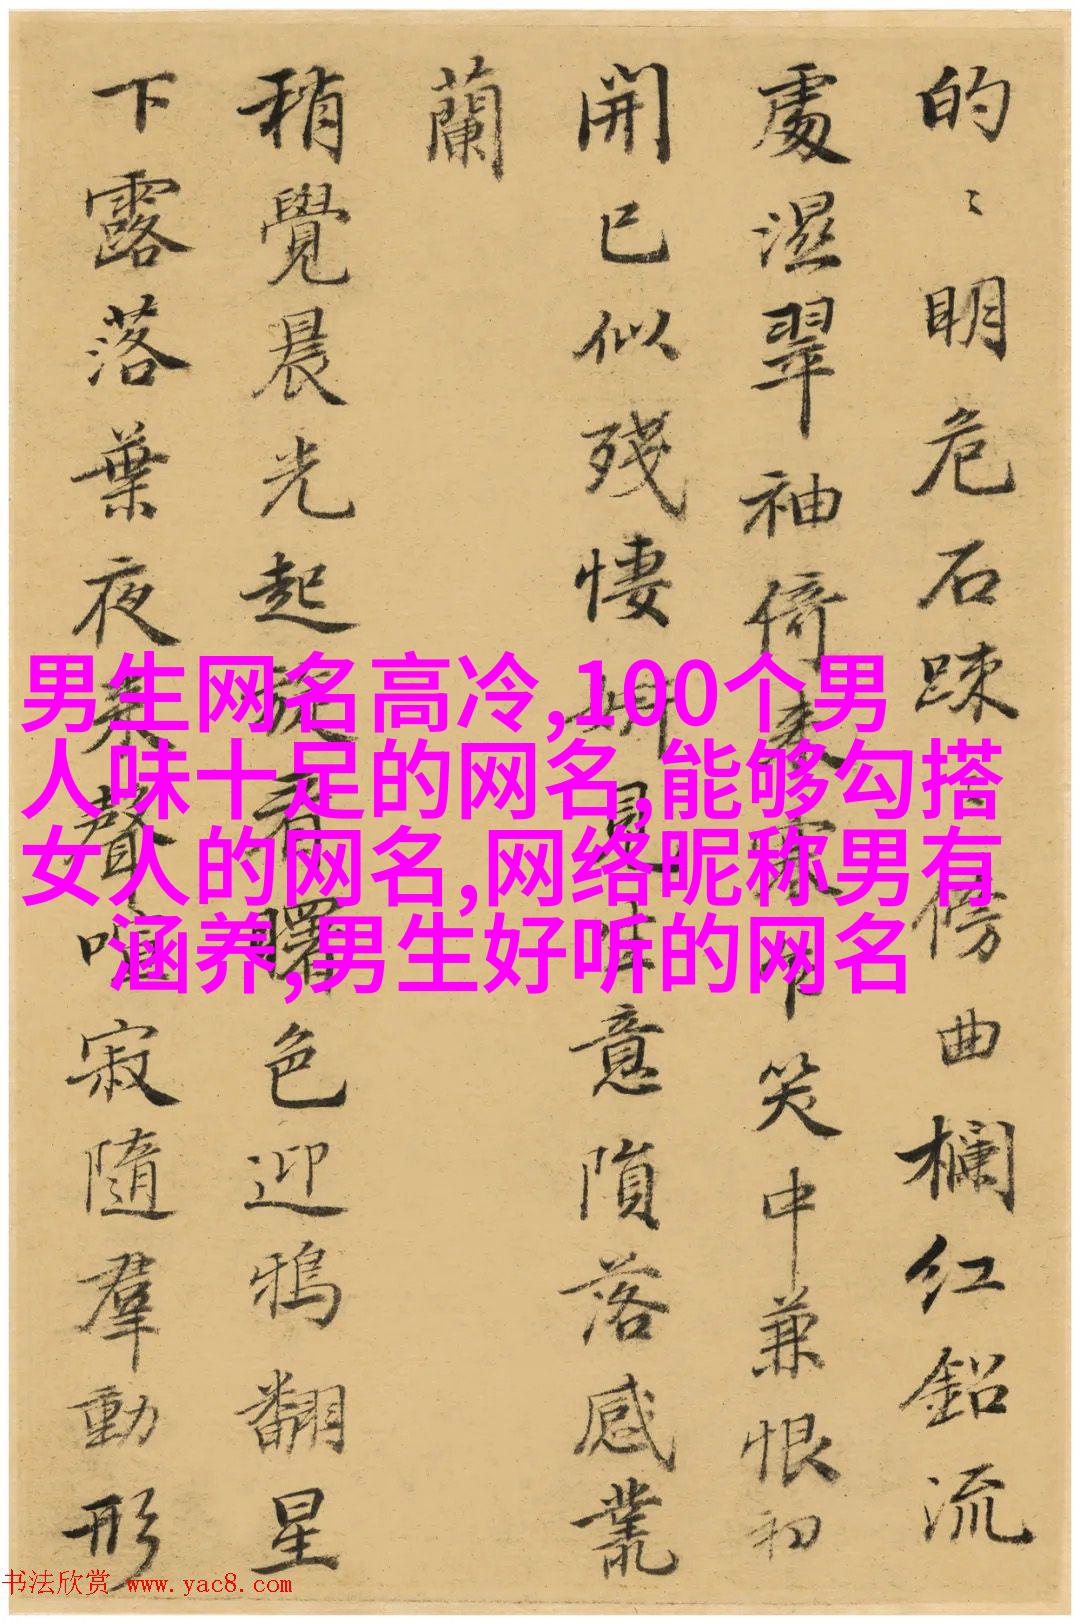 的〻明危石踈〻傍曲欄红鉛流
處濕翠袖倚来寒笑中兼恨初
開已似殘悽見生意隕落感叢
蘭
稍覺晨光起看曙色迎鴉翻星
下露落葉夜来聲喧寂隨羣動形
男生网名高冷,100个男
人味十足的网名,能够勾搭
女人的网名,网络昵称男有
涵养,男生好听的网名
书法欣赏 www.yac8.com